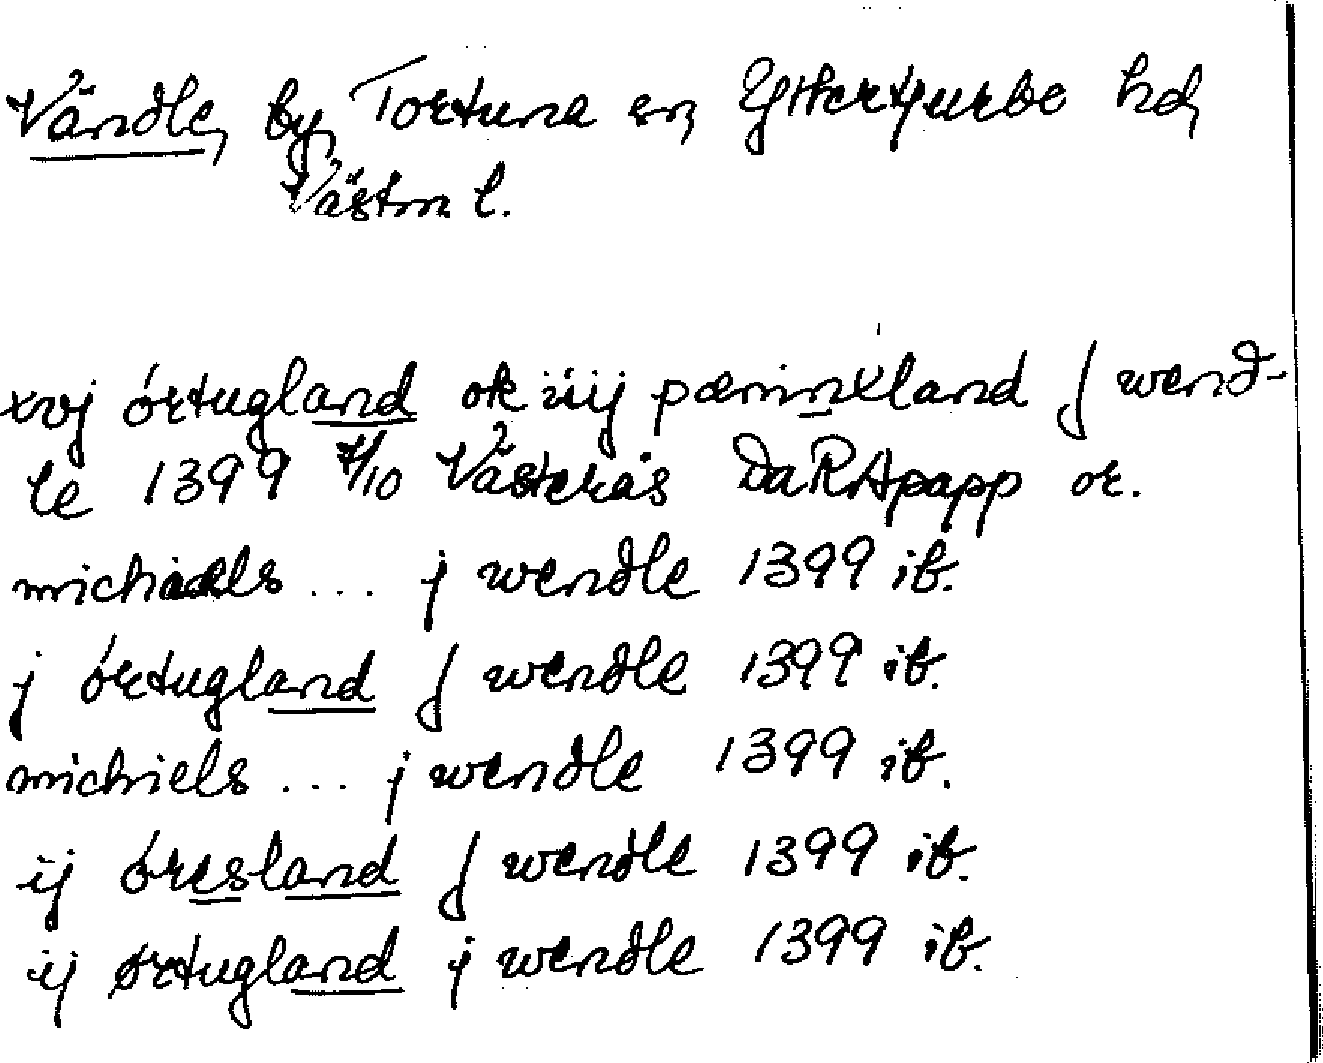 Vändle, by, Tortuna sn, Yttertjurbo hd,
Västm l.
xvj órtugland ok iiij pæninxland J wend-
le 1399 7/10 Västerås DaRApapp or.
michaels ... j wendle 1399 ib.
j órtugland J wendle 1399 ib.
michiels ... j wendle 1399 ib.
ij óresland J wendle 1399 ib.
ij ørtugland j wendle 1399 ib.